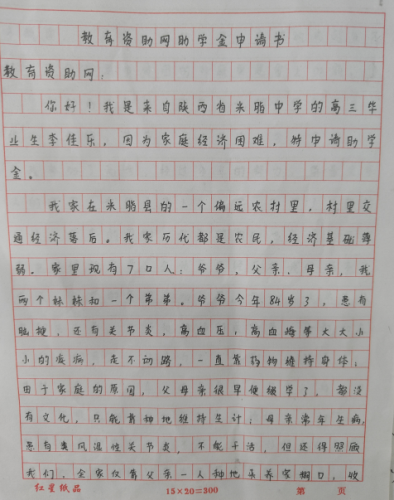 教育资助网助学金申请书
教育资助网：
你好！我是来自陕西省米脂中学的高三毕
业生李佳乐，因为家庭经济困难，特申请助学
金。
我家在米脂县的一个偏远农村里，村里交
通经济落后。我家历代都是农民，经济基础薄
弱。家里现有7口人：爷爷，父亲，母亲，我
两个妹妹和一个弟弟。爷爷今年84岁了，患有
脑梗，还有关节炎，高血压，高血糖等大大小
小的疾病，走不了路，一直靠药物维持身体；
由于家庭的原因，父母亲很早便辍学了。都没
有文化，只能靠种地维持生计；母亲常年生病，
患有类风湿性关节炎，不能干活，但还得照顾
我们，全家仅靠父亲一人种地来养家糊口，收
红星纸品 15×20=300 第 页